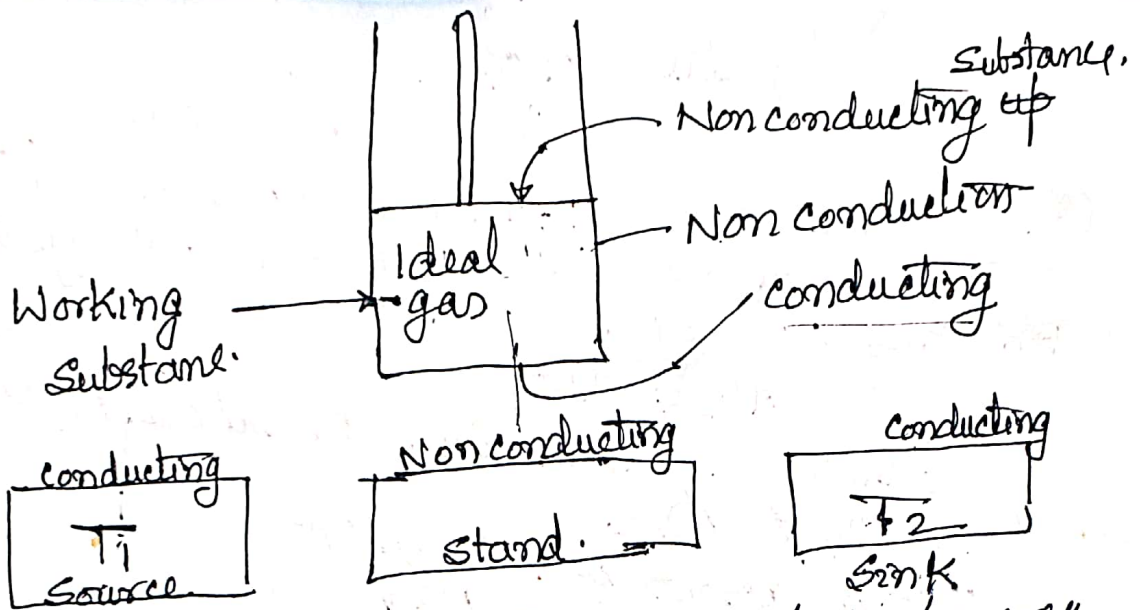 Substance.
Non conducting
Non conduction
conducting
Ideal
gas
Working
Substane.
conducting
T1
Source
Non conducting
stand.
conducting
T2
Sink